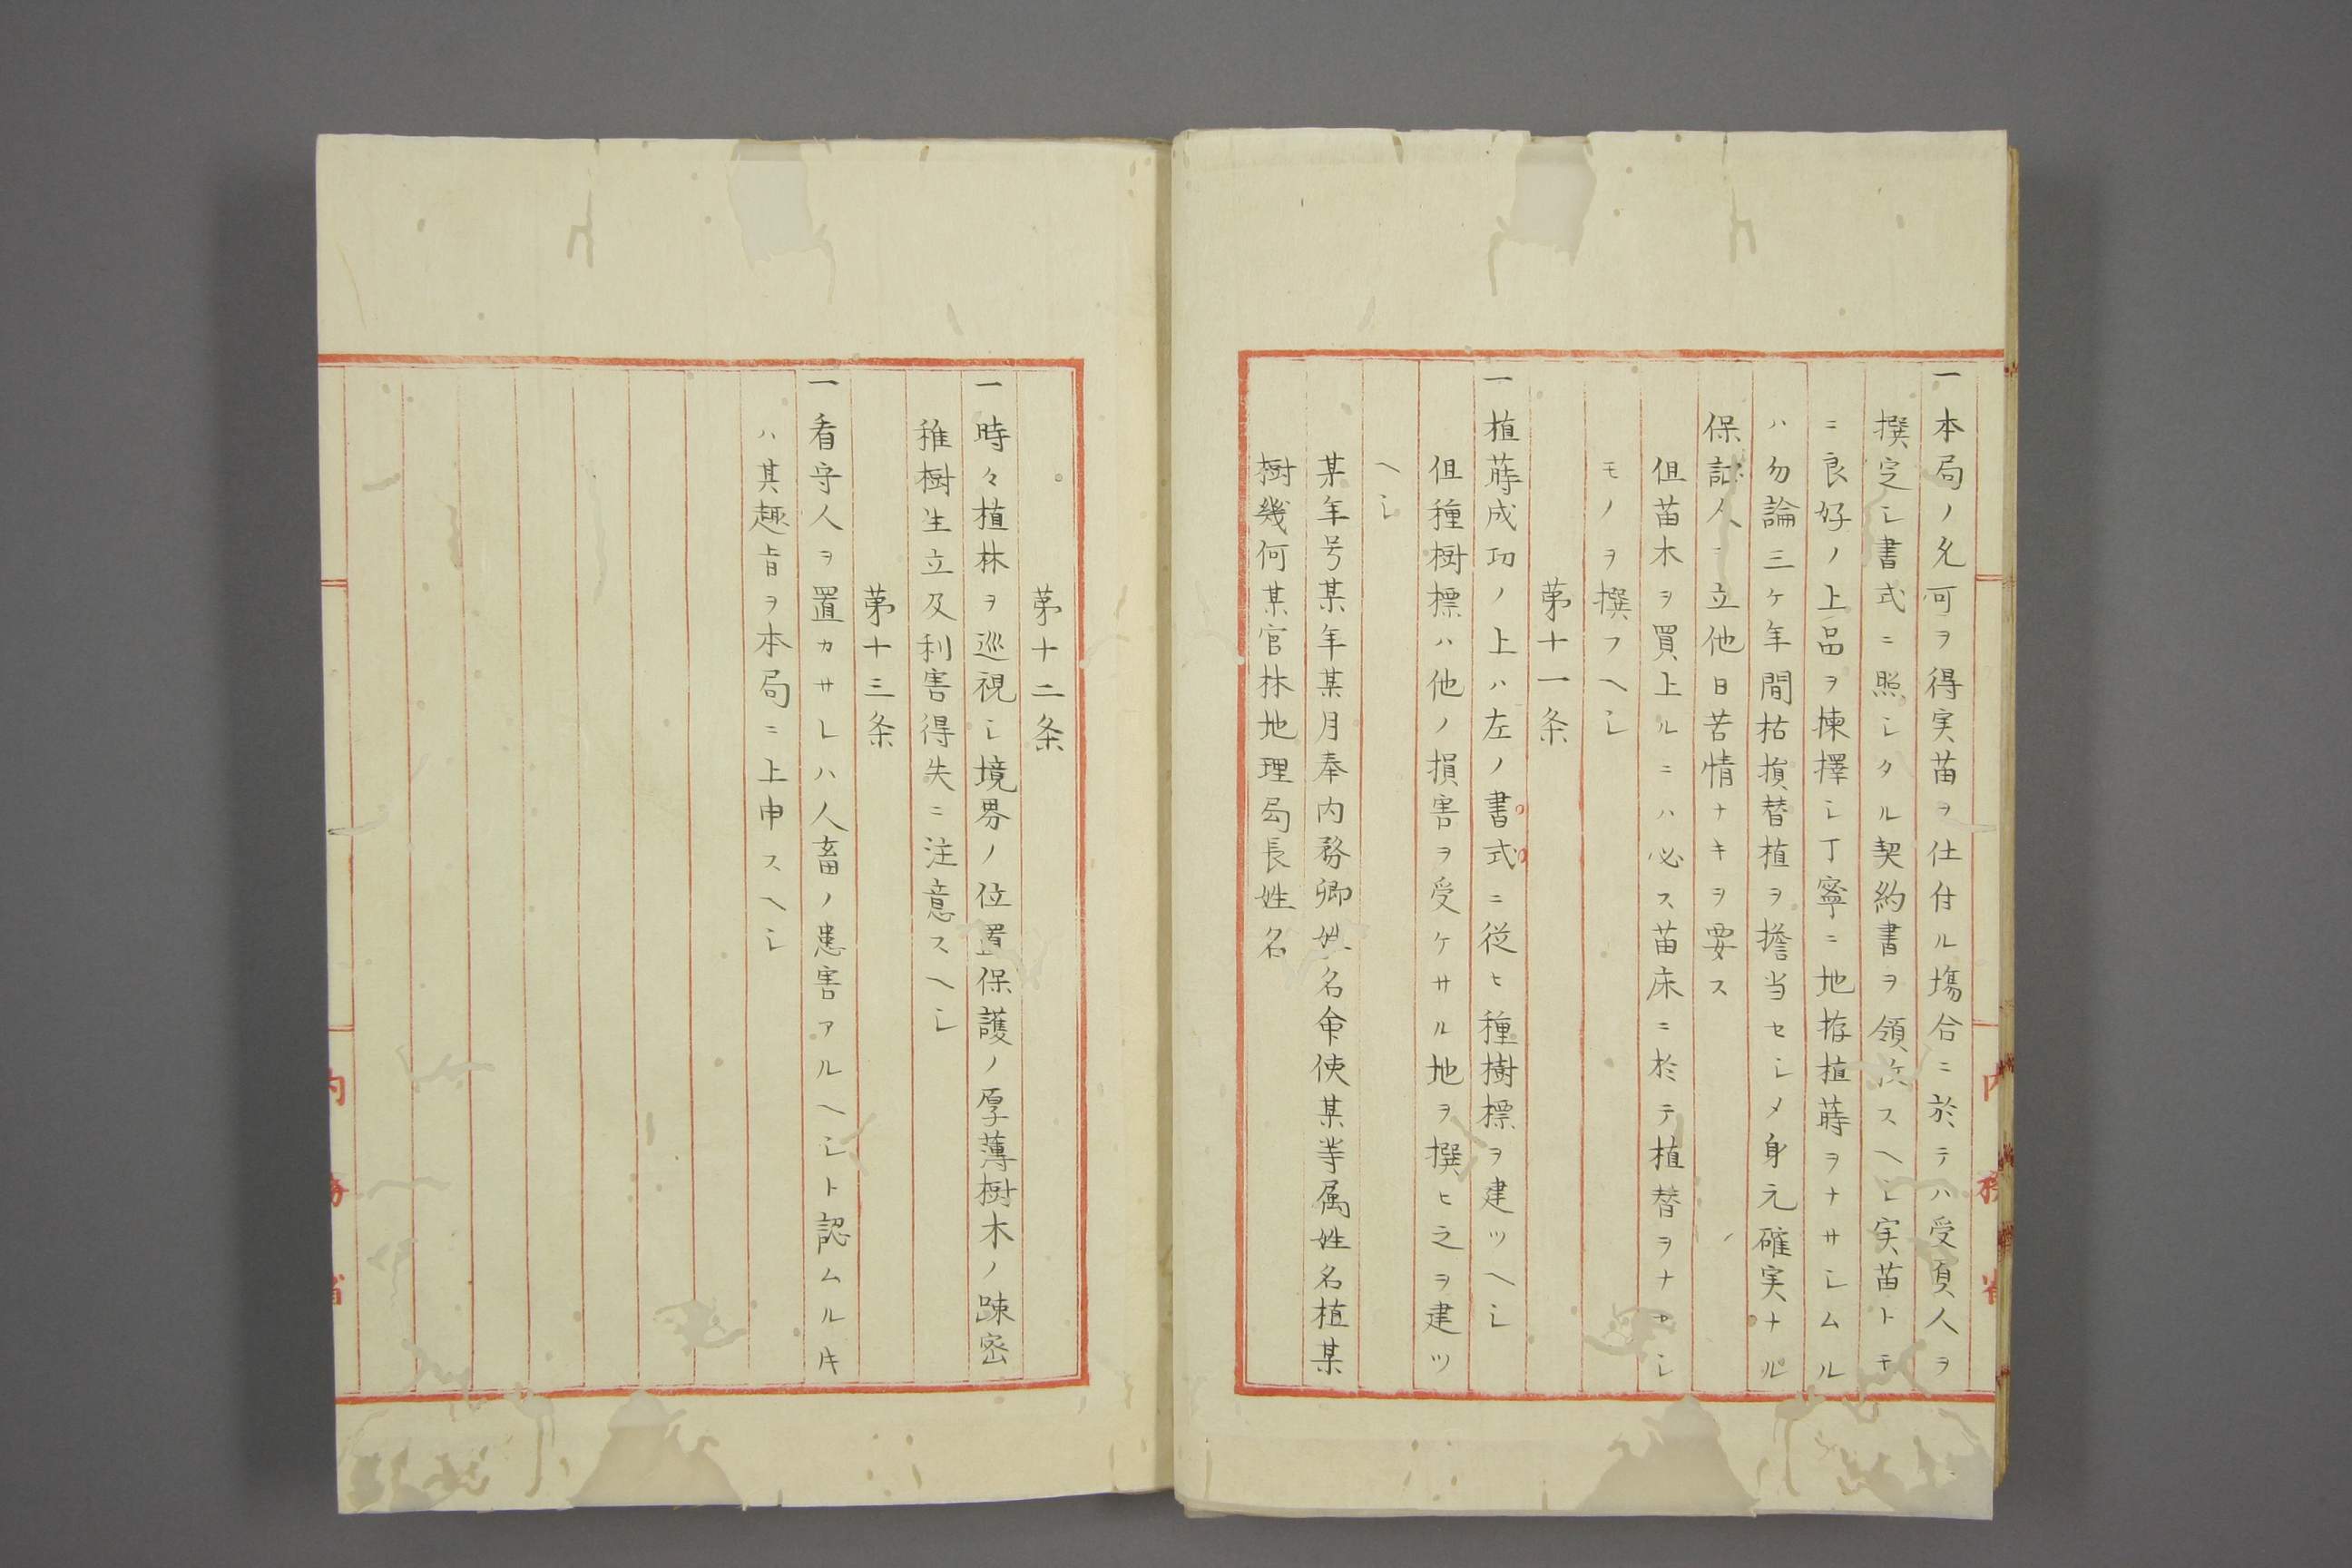 一本局ノ允可ヲ得実苗ヲ仕付ル塲合ニ於テハ受負人ヲ
撰定シ書式ニ照シタル契約書ヲ領スヘシ実苗トモ
ニ良好ノ上品ヲ揀擇シ丁寧ニ地拵植蒔ヲナサシムル
ハ勿論三ケ年間枯損替植ヲ擔当セシメ身元確実ナル
保証人ニ立他日苦情ナキヲ要ス
但苗木ヲ買上ルニハ必ス苗床ニ於テ植替ヲナシ
モノヲ撰フヘシ
苐十一条
一植蒔成功ノ上ハ左ノ書式ニ従ヒ種樹標ヲ建ツヘシ
但種樹標ハ他ノ損害ヲ受ケサル地ヲ撰ヒ之ヲ建ツ
ヘシ
某年号某年某月奉内務卿姓名命使某等属姓名植某
樹幾何某官林地理局長姓名
内務省
苐十二条
一時々植林ヲ巡視シ境界ノ位置保護ノ厚薄樹木ノ踈密
稚樹生立及利害得失ニ注意スヘシ
苐十三条
一看守人ヲ置カサレハ人畜ノ患害アルヘシト認ムルキ
ハ其趣旨ヲ本局ニ上申スヘシ
内務省